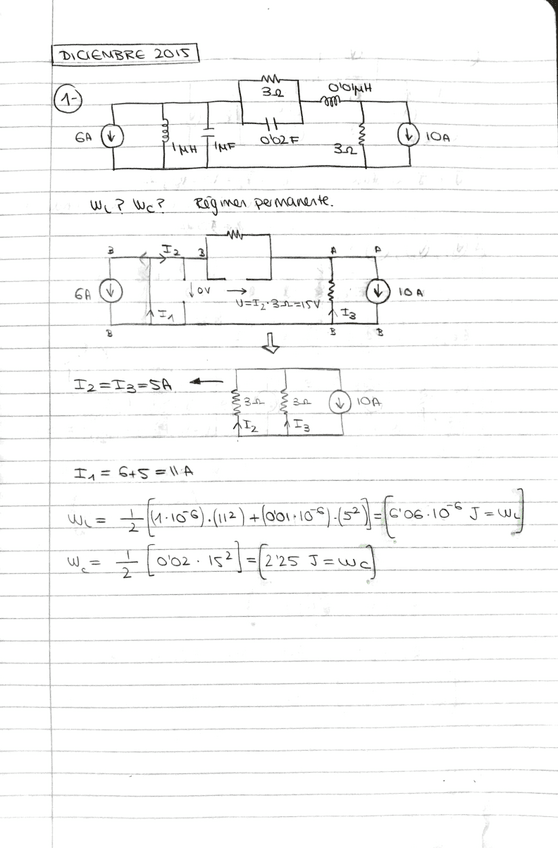 DICIEMBRE 2015
1-
3Ω
0'01μH
6A
1μH
1μF
0'02F
3Ω
10A
WL? WC? Régimen permanente.
B
I2
B
A
A
6A
↓0V
→
10A
I1
U=I2·3Ω=15V
I3
B
B
B
I2=I3=5A ←
3Ω
3Ω
10A
I2
I3
I1 = 6+5 = 11 A
WL = 1/2 [(1·10^-6)·(11^2)+(0'01·10^-6)·(5^2)]=[6'06·10^-6 J = WL]
WC = 1/2 [0'02 · 15^2]=[2'25 J = WC]